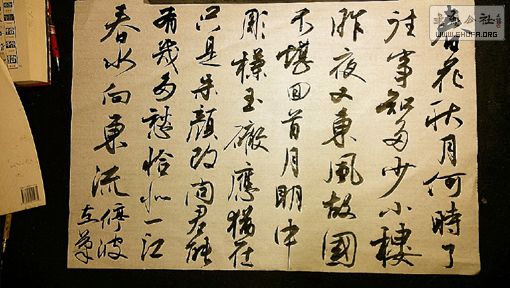 春花秋月何時了
往事知多少小樓
昨夜又東風故國
不堪回首月明中
雕欄玉砌應猶在
只是朱顏改問君能
有幾多愁恰似一江
春水向東流停波
WWW.SHUFA.ORG